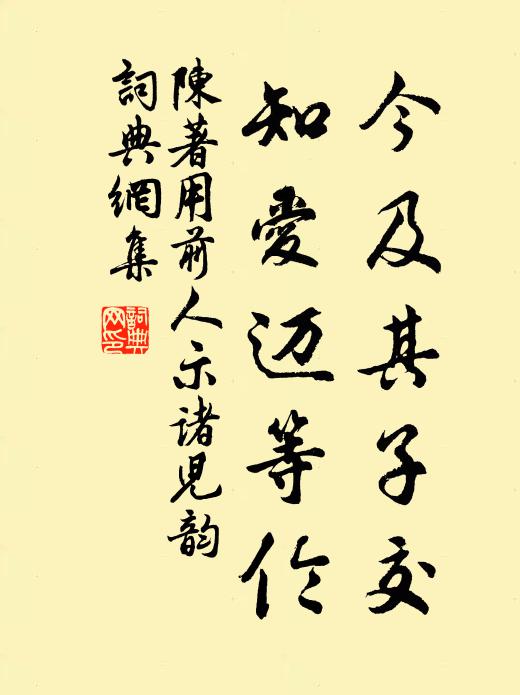 今及其子交
知愛迈等伦
陳著用前人示諸児韵
詞典網集
詞典网印